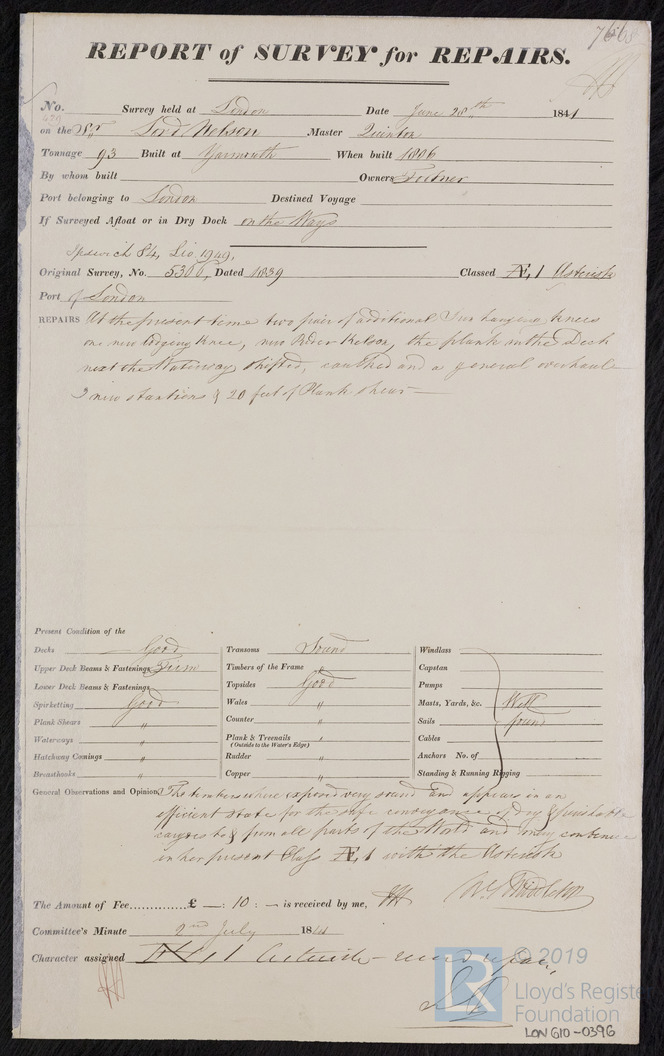 REPORT of SURVEY for REPAIRS.
No. Survey held at London Date June 28th 1841
on the Sr Lord Nelson Master Quinton
Tonnage 93 Built at Yarmouth When built 1806
By whom built Owners
Port belonging to London Destined Voyage
If Surveyed Afloat or in Dry Dock on the Ways
Ipswich 84, Lio 1949,
Original Survey, No. 5306, Dated 1839 Classed Æ, 1 Asterisk
Port of London
REPAIRS At the present time two pair of additional Iron hanging knees
one new lodging knee, new Rider Kelson, the plank in the Deck
next the Waterway shifted, caulked and a general overhaul
3 new stantions & 20 feet of Plank shear
Present Condition of the
Decks Good Transoms Sound Windlass
Upper Deck Beams & Fastenings Firm Timbers of the Frame do Capstan
Lower Deck Beams & Fastenings Topsides Good Pumps
Spirketting Good Wales " Masts, Yards, &c. Well
Plank Shears " Counter " Sails found
Waterways " Plank & Treenails " Cables
(Outside to the Water's Edge)
Hatchway Comings " Rudder " Anchors No. of
Breasthooks " Copper " Standing & Running Rigging
General Observations and Opinion, The timbers where exposed very sound and appears in an
efficient state for the safe conveyance of dry & perishable
cargoes to & from all parts of the World and may continue
in her present Class Æ, 1 with the Asterisk
The Amount of Fee £ —: 10 : — is received by me,
Committee's Minute 2nd July 1841
Character assigned Æ 1 Asterisk
© 2019
LR
Lloyd's Register
Foundation
LON 610-0396